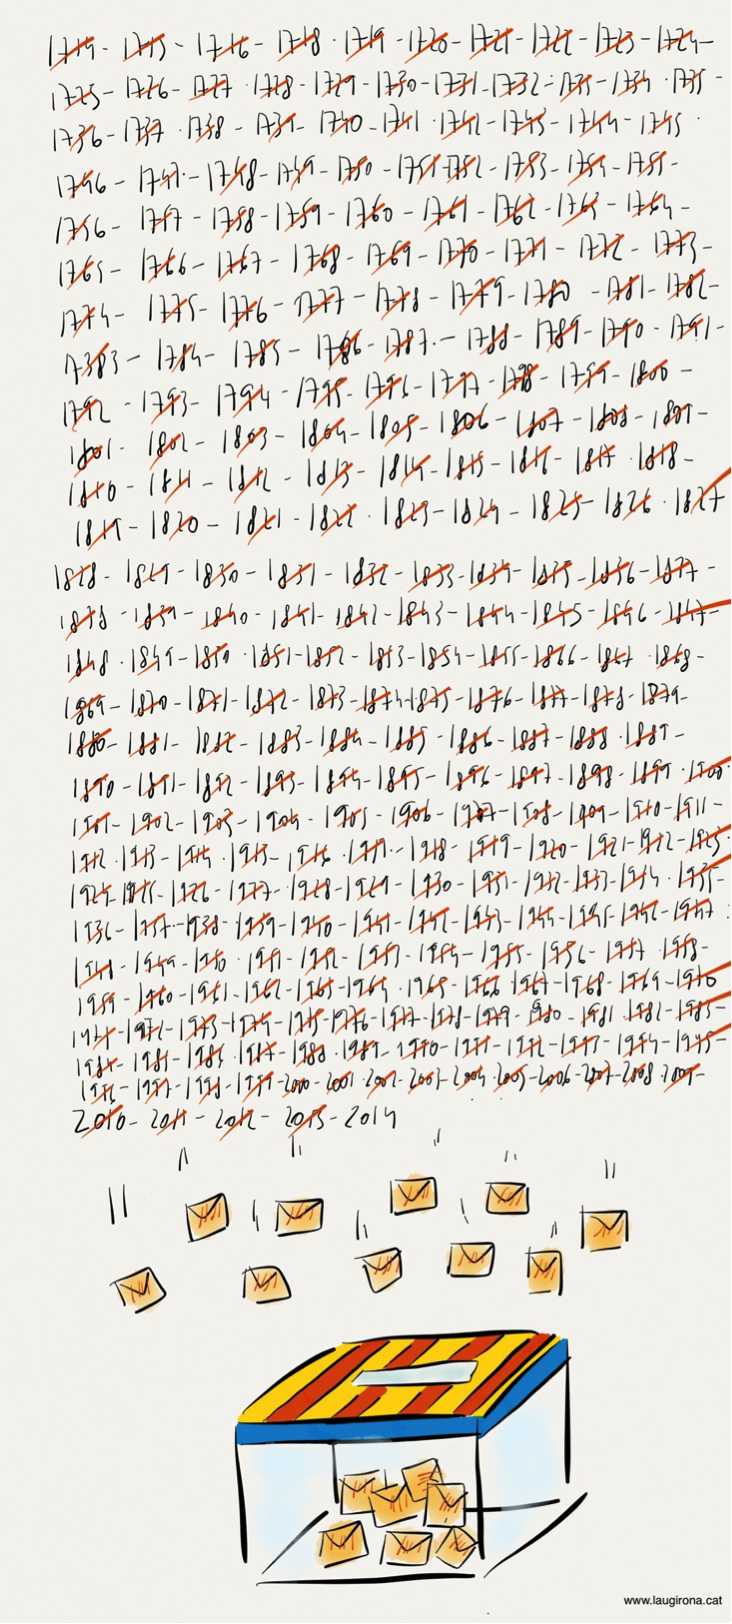 1714 - 1715 - 1716 - 1718 - 1719 - 1720 - 1721 - 1722 - 1723 - 1724 -
1725 - 1726 - 1727 - 1728 - 1729 - 1730 - 1731 - 1732 - 1733 - 1734 - 1735 -
1736 - 1737 - 1738 - 1739 - 1740 - 1741 - 1742 - 1743 - 1744 - 1745 -
1746 - 1747 - 1748 - 1749 - 1750 - 1751 - 1752 - 1753 - 1754 - 1755 -
1756 - 1757 - 1758 - 1759 - 1760 - 1761 - 1762 - 1763 - 1764 -
1765 - 1766 - 1767 - 1768 - 1769 - 1770 - 1771 - 1772 - 1773 -
1774 - 1775 - 1776 - 1777 - 1778 - 1779 - 1780 - 1781 - 1782 -
1783 - 1784 - 1785 - 1786 - 1787 - 1788 - 1789 - 1790 - 1791 -
1792 - 1793 - 1794 - 1795 - 1796 - 1797 - 1798 - 1799 - 1800 -
1801 - 1802 - 1803 - 1804 - 1805 - 1806 - 1807 - 1808 - 1809 -
1810 - 1811 - 1812 - 1813 - 1814 - 1815 - 1816 - 1817 - 1818 -
1819 - 1820 - 1821 - 1822 - 1823 - 1824 - 1825 - 1826 - 1827
1828 - 1829 - 1830 - 1831 - 1832 - 1833 - 1834 - 1835 - 1836 - 1837 -
1838 - 1839 - 1840 - 1841 - 1842 - 1843 - 1844 - 1845 - 1846 - 1847 -
1848 - 1849 - 1850 - 1851 - 1852 - 1853 - 1854 - 1855 - 1866 - 1867 - 1868 -
1869 - 1870 - 1871 - 1872 - 1873 - 1874 - 1875 - 1876 - 1877 - 1878 - 1879 -
1880 - 1881 - 1882 - 1883 - 1884 - 1885 - 1886 - 1887 - 1888 - 1889 -
1890 - 1891 - 1892 - 1893 - 1894 - 1895 - 1896 - 1897 - 1898 - 1899 - 1900 -
1901 - 1902 - 1903 - 1904 - 1905 - 1906 - 1907 - 1908 - 1909 - 1910 - 1911 -
1912 - 1913 - 1914 - 1915 - 1916 - 1917 - 1918 - 1919 - 1920 - 1921 - 1922 - 1923 -
1924 - 1925 - 1926 - 1927 - 1928 - 1929 - 1930 - 1931 - 1932 - 1933 - 1934 - 1935 -
1936 - 1937 - 1938 - 1939 - 1940 - 1941 - 1942 - 1943 - 1944 - 1945 - 1946 - 1947
1948 - 1949 - 1950 - 1951 - 1952 - 1953 - 1954 - 1955 - 1956 - 1957 - 1958 -
1959 - 1960 - 1961 - 1962 - 1963 - 1964 - 1965 - 1966 - 1967 - 1968 - 1969 - 1970
1971 - 1972 - 1973 - 1974 - 1975 - 1976 - 1977 - 1978 - 1979 - 1980 - 1981 - 1982 - 1983 -
1984 - 1985 - 1986 - 1987 - 1988 - 1989 - 1990 - 1991 - 1992 - 1993 - 1994 - 1995 -
1996 - 1997 - 1998 - 1999 - 2000 - 2001 - 2002 - 2003 - 2004 - 2005 - 2006 - 2007 - 2008 - 2009 -
2010 - 2011 - 2012 - 2013 - 2014
www.laugirona.cat